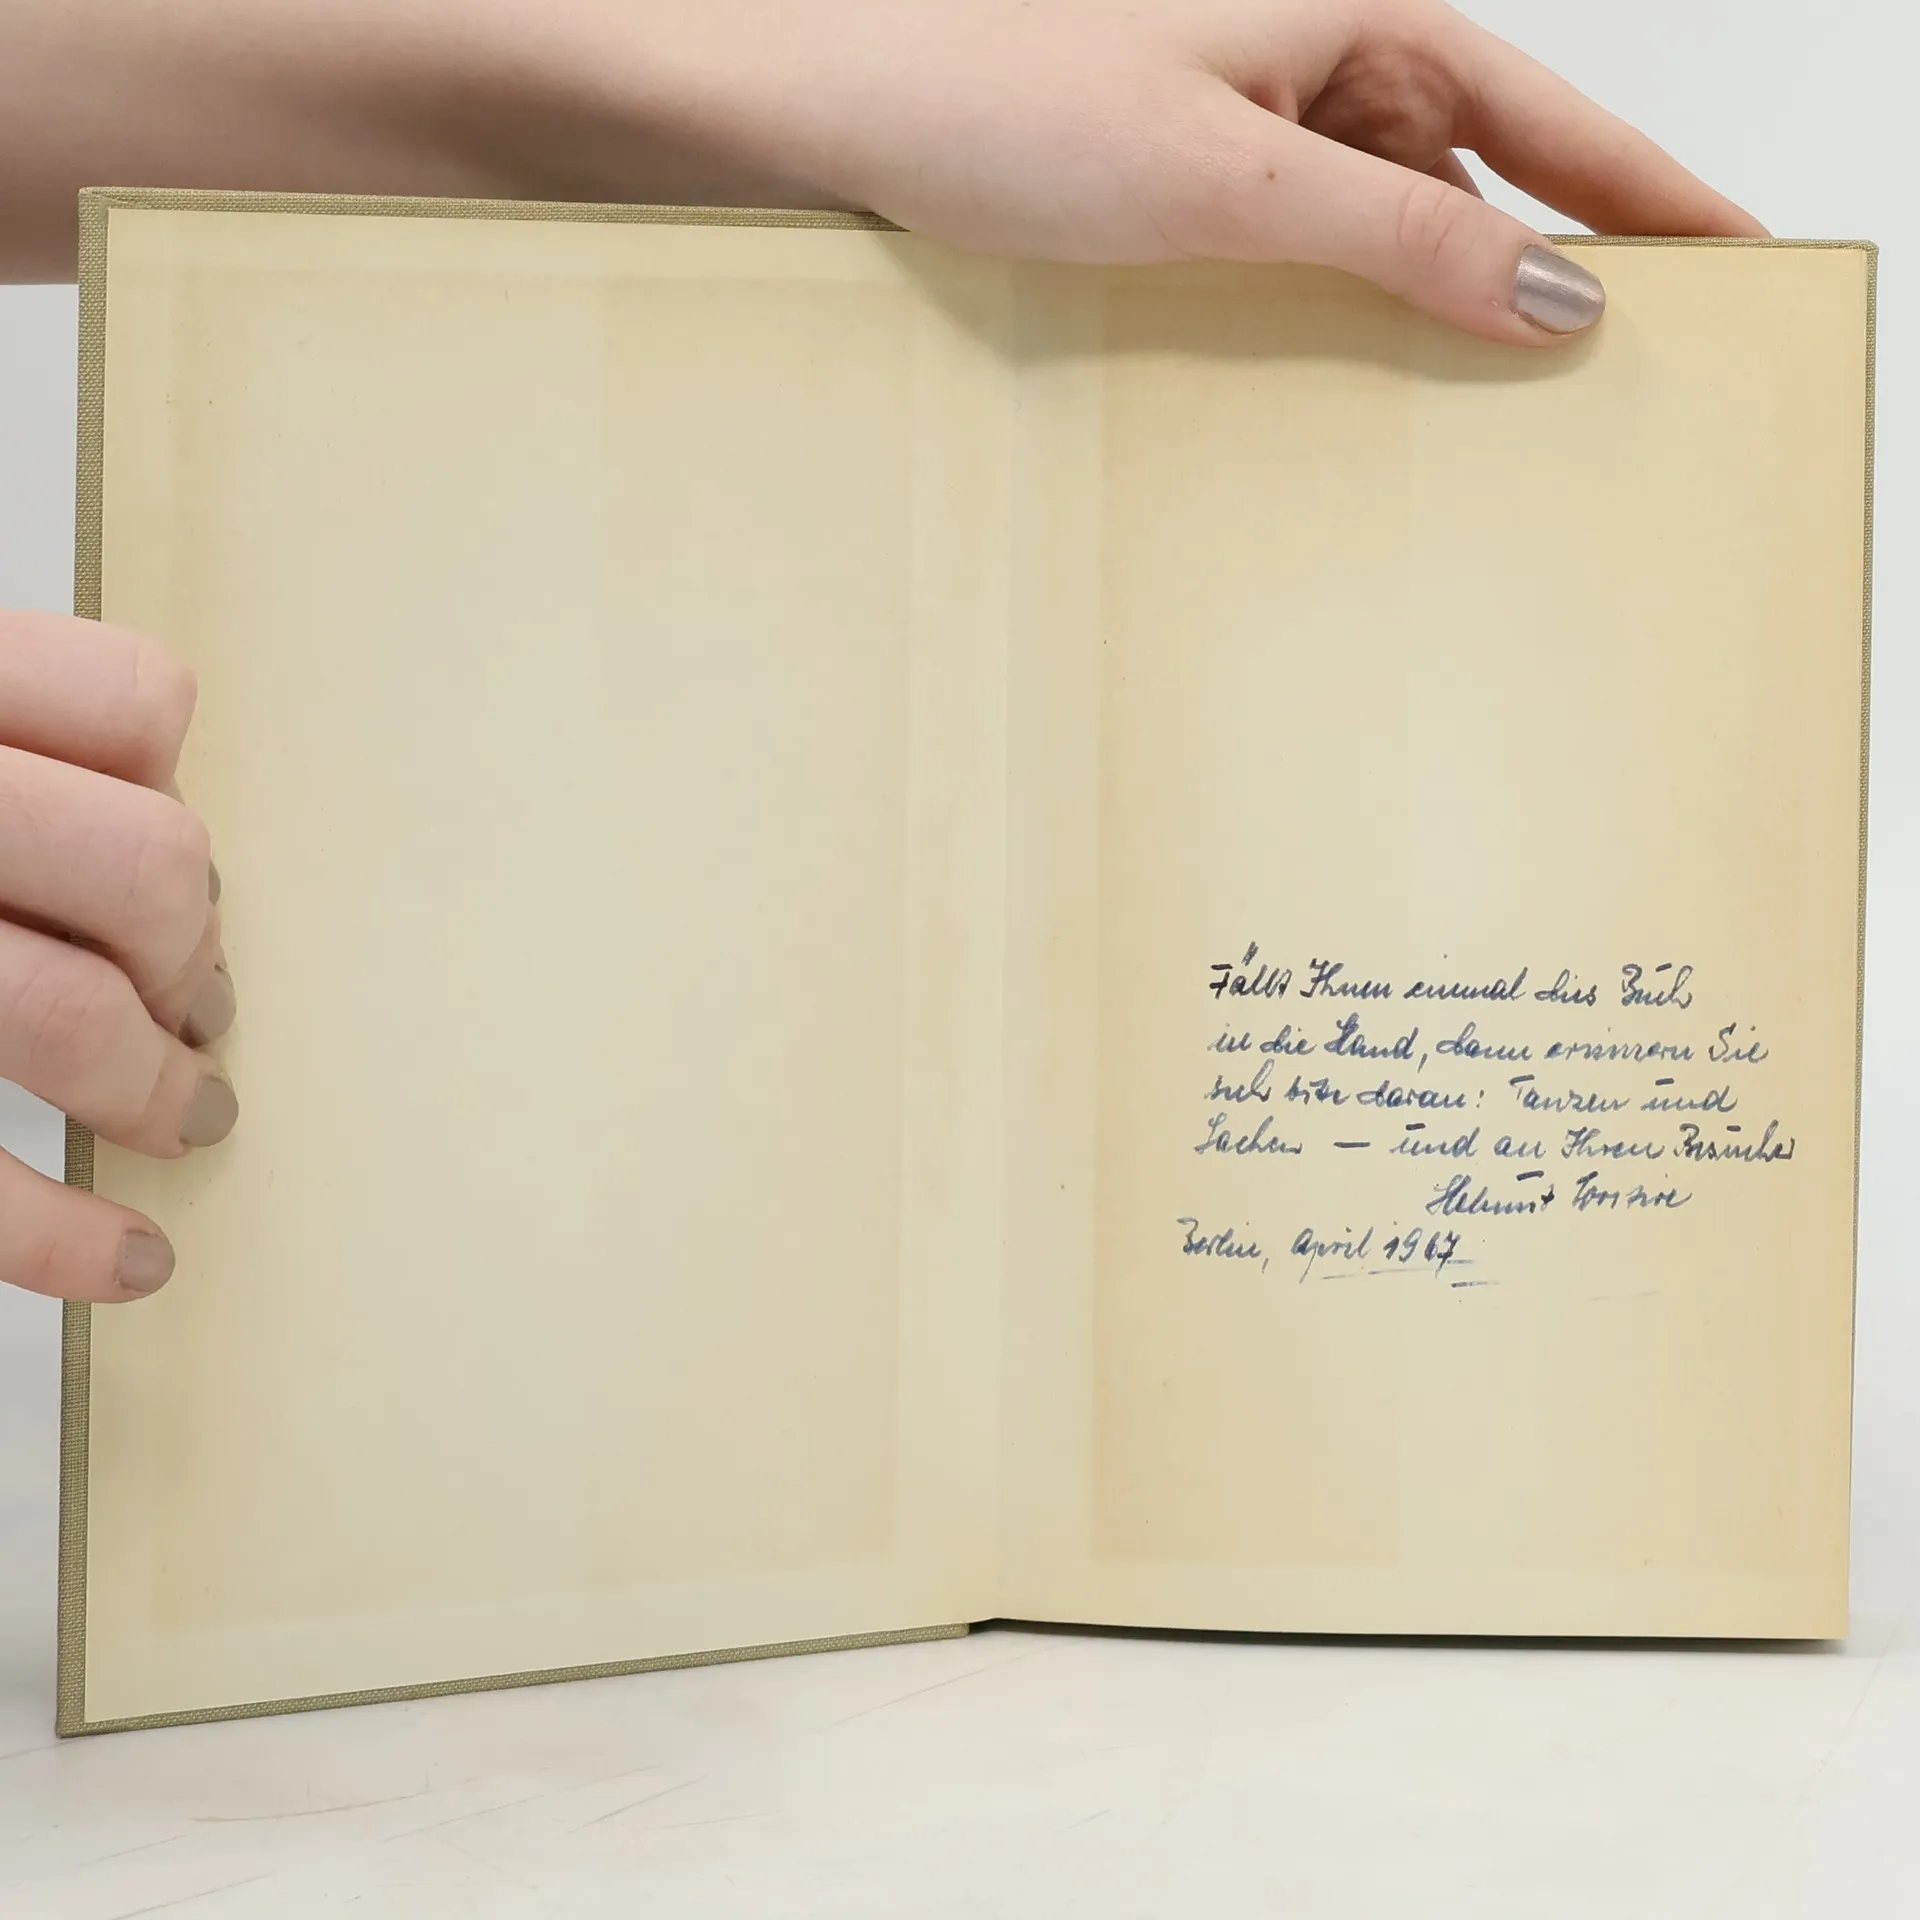 Fällt Ihnen einmal dies Buch
in die Hand, dann erinnern Sie
sich bitte daran: Tanzen und
Lachen — und an Ihren Besucher
Helmut
Berlin, April 1967